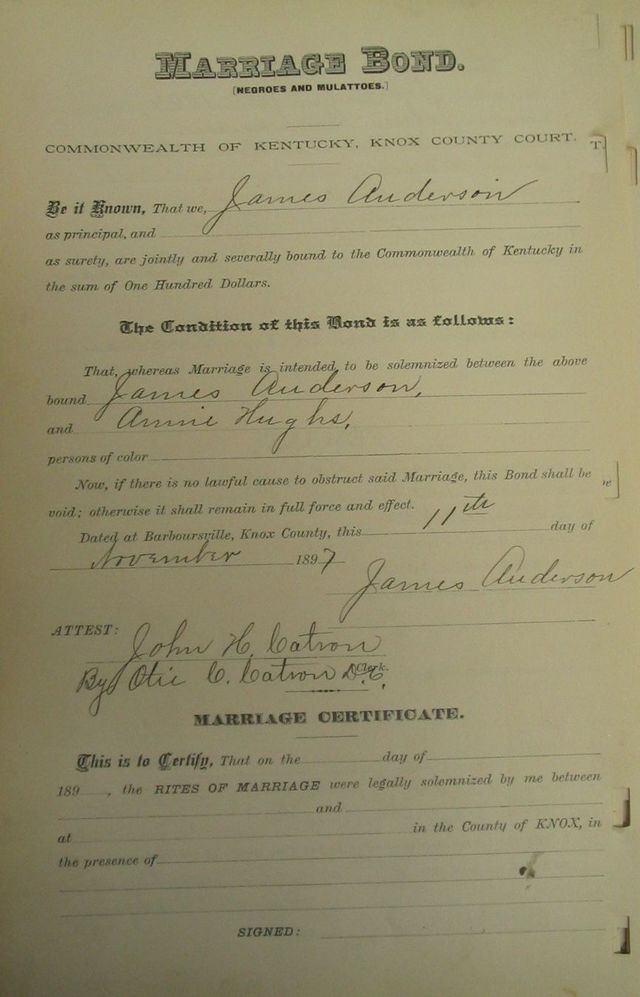 MARRIAGE BOND.
[NEGROES AND MULATTOES.]
COMMONWEALTH OF KENTUCKY, KNOX COUNTY COURT. T.
Be it Known, That we, James Anderson
as principal, and
as surety, are jointly and severally bound to the Commonwealth of Kentucky in
the sum of One Hundred Dollars.
The Condition of this Bond is as follows:
That, whereas Marriage is intended to be solemnized between the above
bound James Anderson,
and Annie Hughs,
persons of color
Now, if there is no lawful cause to obstruct said Marriage, this Bond shall be
void; otherwise it shall remain in full force and effect.
Dated at Barboursville, Knox County, this 11th day of
November 1897
James Anderson
ATTEST: John H. Catron
By Otie C. Catron D.C. Clerk.
MARRIAGE CERTIFICATE.
This is to Certify, That on the day of
189 , the RITES OF MARRIAGE were legally solemnized by me between
and
at in the County of KNOX, in
the presence of
SIGNED: